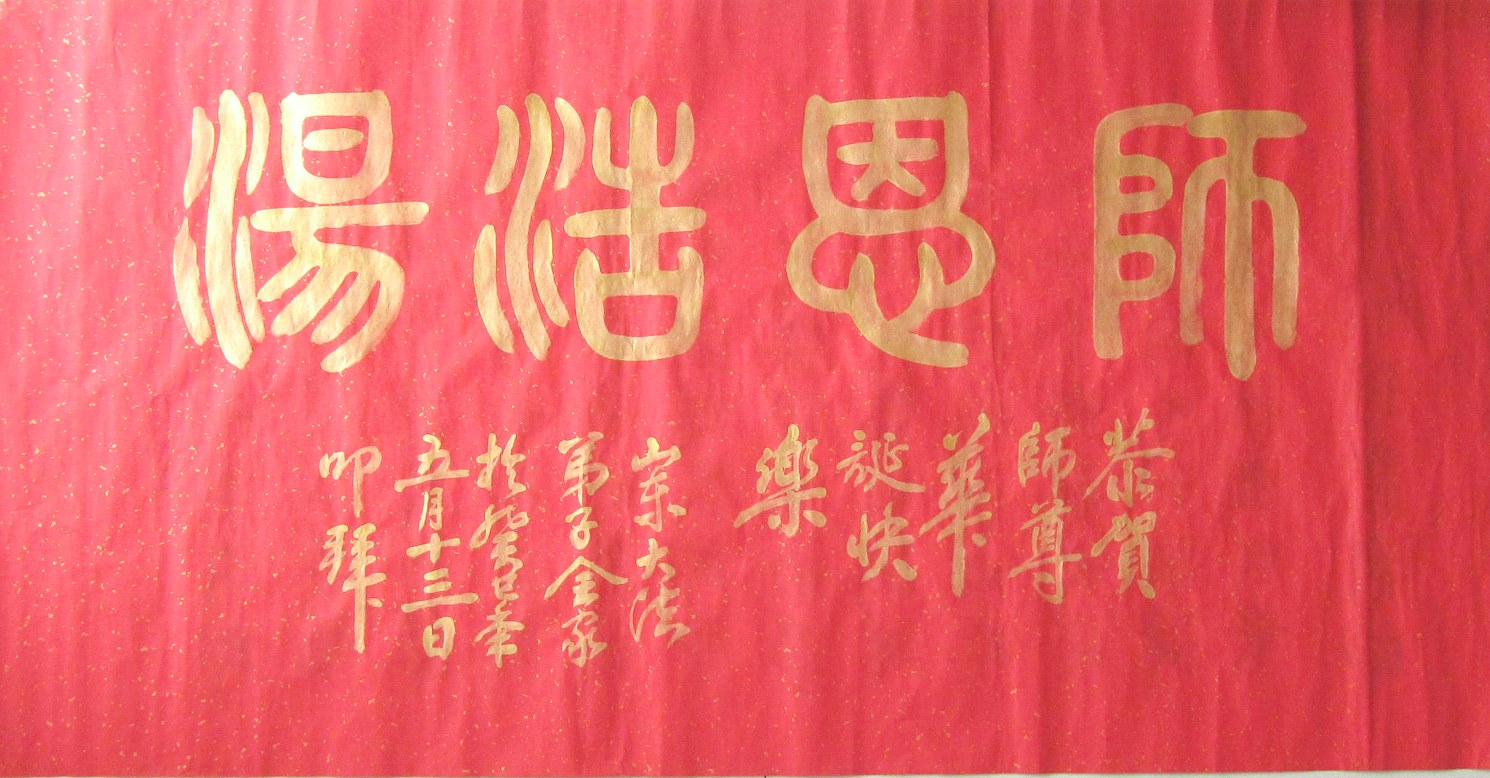 師恩浩湯
恭賀
師尊
華
誕快
樂
崇大法
弟子全家
於癸巳年
五月十三日
叩拜